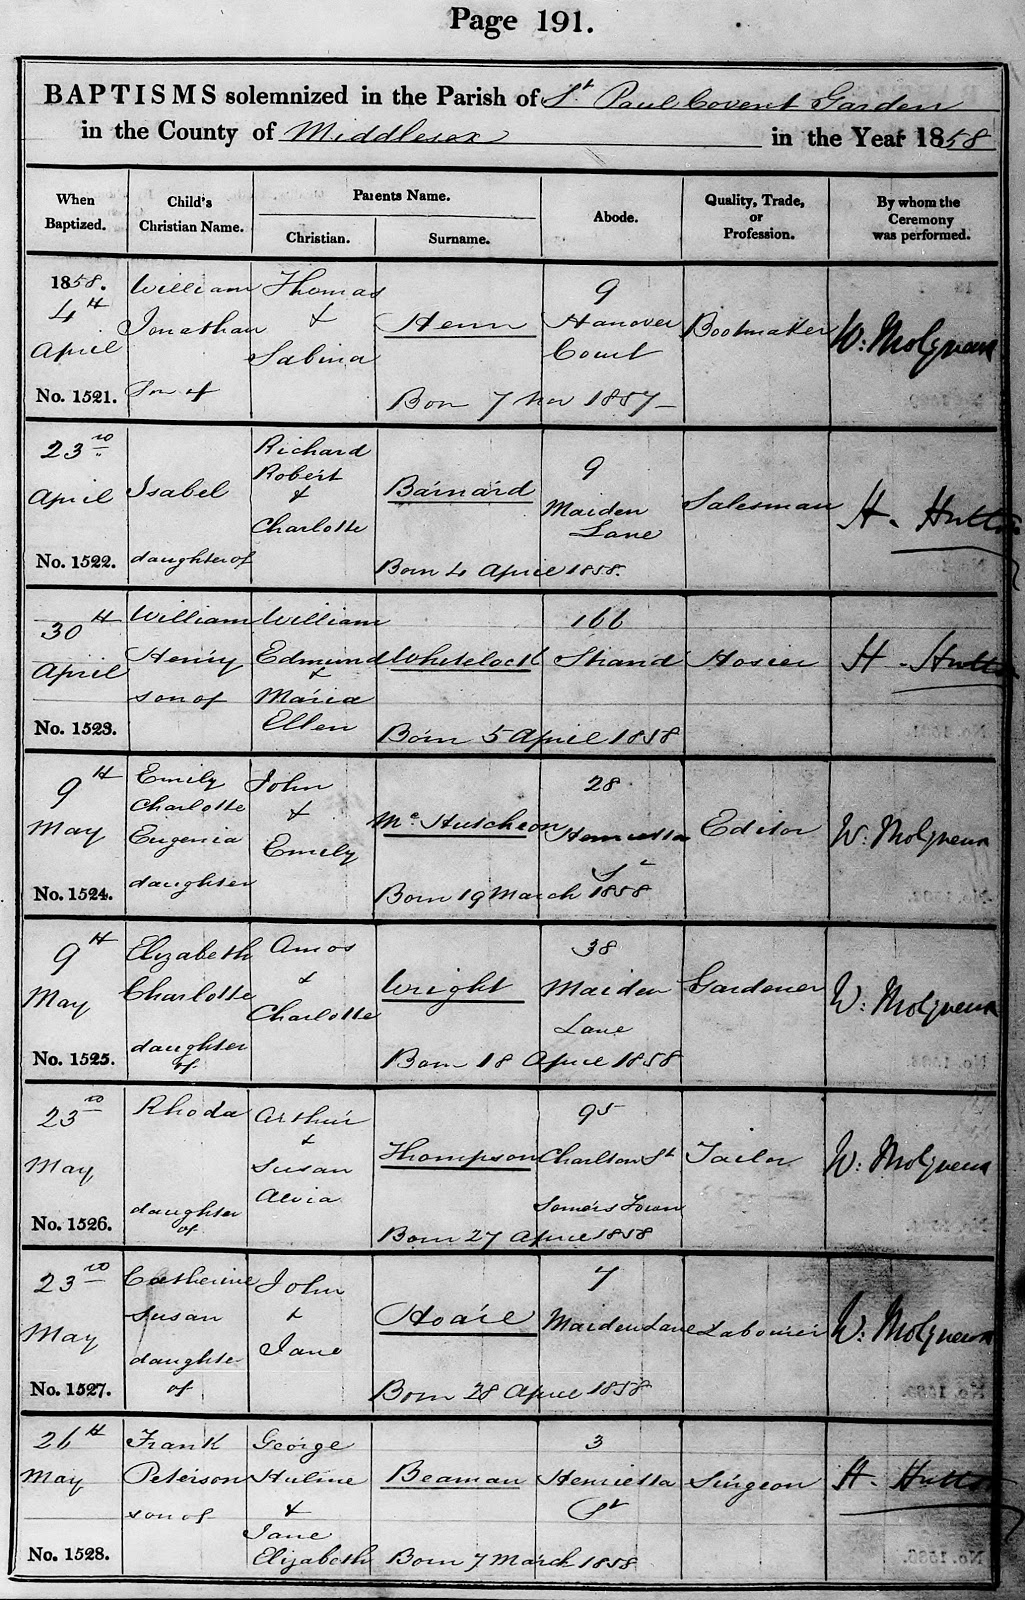 Page 191.
BAPTISMS solemnized in the Parish of St Paul Covent Garden
in the County of Middlesex in the Year 1858
When Baptized.
Child's Christian Name.
Parents Name.
Christian.
Surname.
Abode.
Quality, Trade, or Profession.
By whom the Ceremony was performed.
1858.
4th
April
No. 1521.
William
Jonathan
Son of
Thomas
&
Sabina
Henn
Born 7 Nov 1857
9
Hanover
Court
Bootmaker
W: Molyneux
23rd
April
No. 1522.
Isabel
daughter of
Richard
Robert
&
Charlotte
Barnard
Born 4 April 1858.
9
Maiden
Lane
Salesman
H. Hutton
30th
April
No. 1523.
William
Henry
son of
William
Edmund
&
Maria
Ellen
Whitelock
Born 5 April 1858
166
Strand
Hosier
H. Hutton
9th
May
No. 1524.
Emily
Charlotte
Eugenia
daughter
John
&
Emily
Mc Hutcheon
Born 19 March 1858
28
Henrietta
St
Editor
W: Molyneux
9th
May
No. 1525.
Elizabeth
Charlotte
daughter
of
Amos
&
Charlotte
Wright
Born 18 April 1858
38
Maiden
Lane
Gardener
W: Molyneux
23rd
May
No. 1526.
Rhoda
daughter
of
Arthur
&
Susan
Thompson
Born 27 April 1858
95
Charlton St
Somers Town
Tailor
W: Molyneux
23rd
May
No. 1527.
Catherine
Susan
daughter
of
John
&
Jane
Hoare
Born 28 April 1858
7
Maiden Lane
Labourer
W: Molyneux
26th
May
No. 1528.
Frank
Peterson
son of
George
Hulme
&
Jane
Elizabeth
Beaman
Born 7 March 1858
3
Henrietta
St
Surgeon
H. Hutton